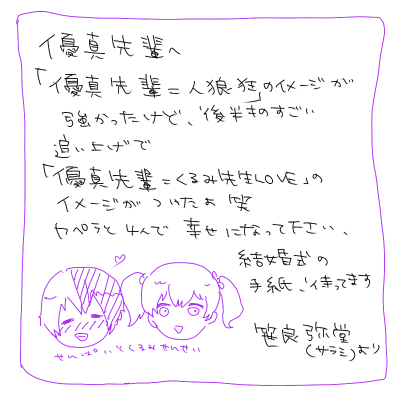 優真先輩へ
「優真先輩=人狼狂」のイメージが
強かったけど、後半のすごい
追い上げで
「優真先輩=くるみ先生LOVE」の
イメージがついたよ 笑
ヤペラと4人で 幸せになって下さい、
結婚式の
手紙、待ってます
笹良弥堂
(サラミ)より
せんぱいとくるみせんせい